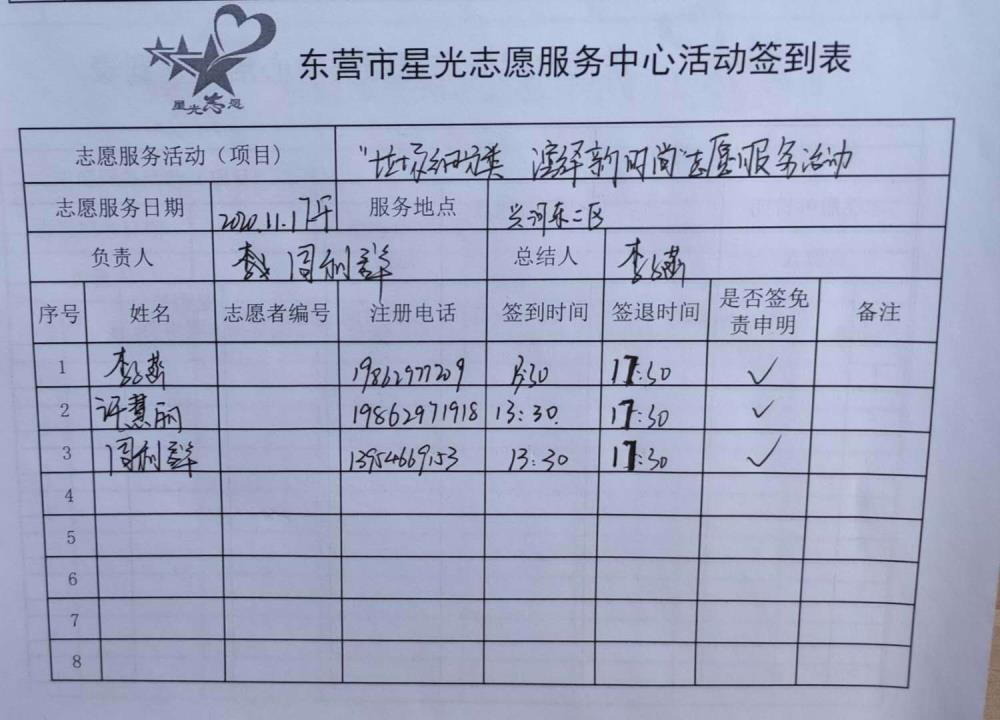 星光志愿
东营市星光志愿服务中心活动签到表
志愿服务活动（项目） “垃圾细分类 演绎新时尚”志愿服务活动
志愿服务日期 2020.11.17下午 服务地点 兴河东二区
负责人 周利群 总结人
序号 姓名 志愿者编号 注册电话 签到时间 签退时间 是否签免责申明 备注
1 19862977209 13:30 17:30 ✓
2 许慧丽 19862971918 13:30 17:30 ✓
3 周利群 13954669153 13:30 17:30 ✓
4
5
6
7
8